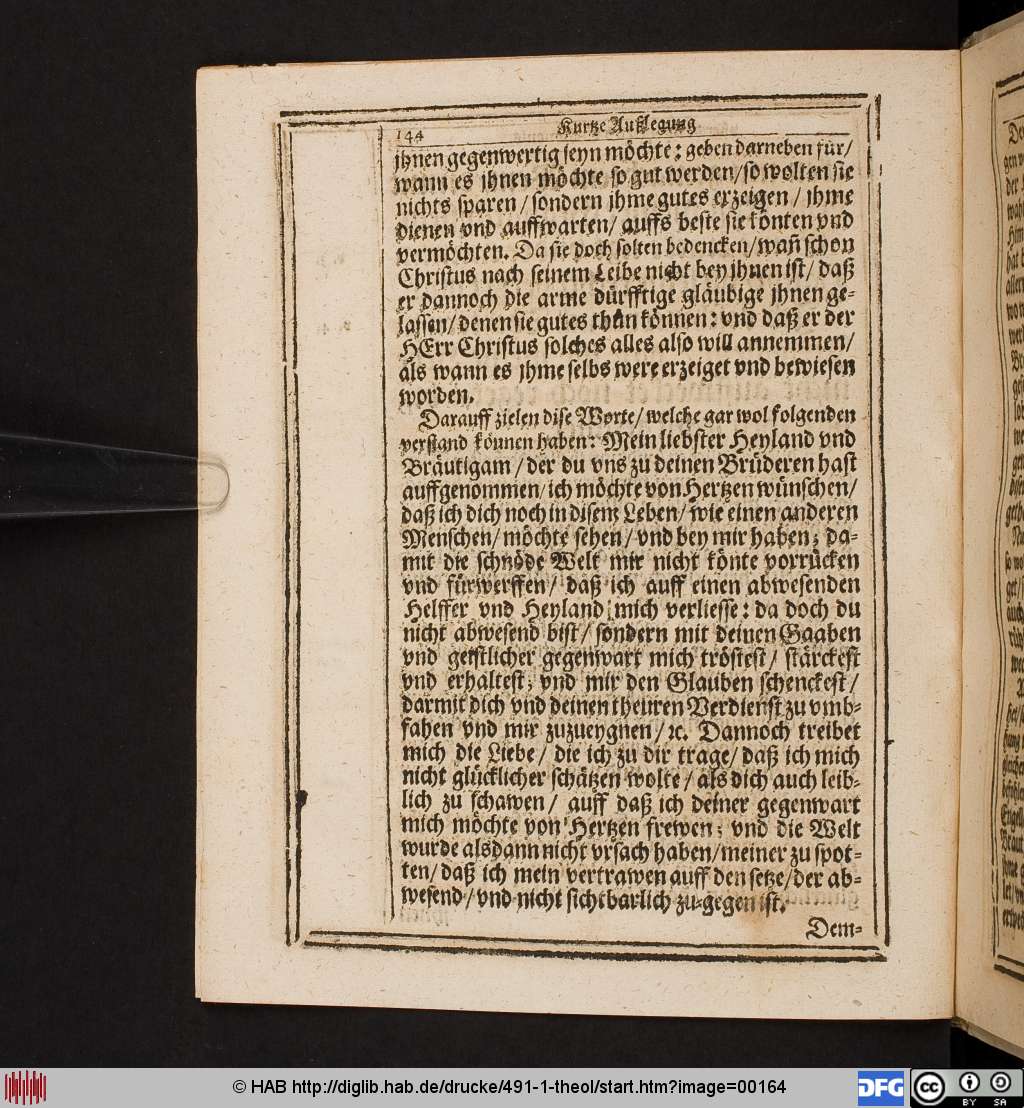 144 Kurtze Außlegung
jhnen gegenwertig seyn möchte: geben darneben für/
wann es jhnen möchte so gut werden/ so wolten sie
nichts sparen/ sondern jhme gutes erzeigen/ jhme
dienen vnd auffwarten/ auffs beste sie könten vnd
vermöchten. Da sie doch solten bedencken/ wañ schon
Christus nach seinem Leibe nicht bey jhnen ist/ daß
er dannoch die arme dürfftige gläubige jhnen ge-
lassen/ denen sie gutes thůn können: vnd daß er der
HErr Christus solches alles also will annemmen/
als wann es jhme selbs were erzeiget vnd bewiesen
worden.
Darauff zielen dise Worte/ welche gar wol folgenden
verstand können haben: Mein liebster Heyland vnd
Bräutigam/ der du vns zu deinen Brüderen hast
auffgenommen/ ich möchte von Hertzen wünschen/
daß ich dich noch in disem Leben/ wie einen anderen
Menschen/ möchte sehen/ vnd bey mir haben; da-
mit die schnöde Welt mir nicht könte vorrücken
vnd fürwerffen/ daß ich auff einen abwesenden
Helffer vnd Heyland mich verliesse: da doch du
nicht abwesend bist/ sondern mit deinen Gaaben
vnd geistlicher gegenwart mich tröstest/ stärckest
vnd erhaltest; vnd mir den Glauben schenckest/
darmit dich vnd deinen theuren Verdienst zu vmb-
fahen vnd mir zuzueygnen/ ꝛc. Dannoch treibet
mich die Liebe/ die ich zu dir trage/ daß ich mich
nicht glücklicher schätzen wolte/ als dich auch leib-
lich zu schawen/ auff daß ich deiner gegenwart
mich möchte von Hertzen frewen; vnd die Welt
wurde alsdann nicht vrsach haben/ meiner zu spot-
ten/ daß ich mein vertrawen auff den setze/ der ab-
wesend/ vnd nicht sichtbarlich zu-gegen ist.
Dem-
© HAB http://diglib.hab.de/drucke/491-1-theol/start.htm?image=00164
DFG
cc BY SA